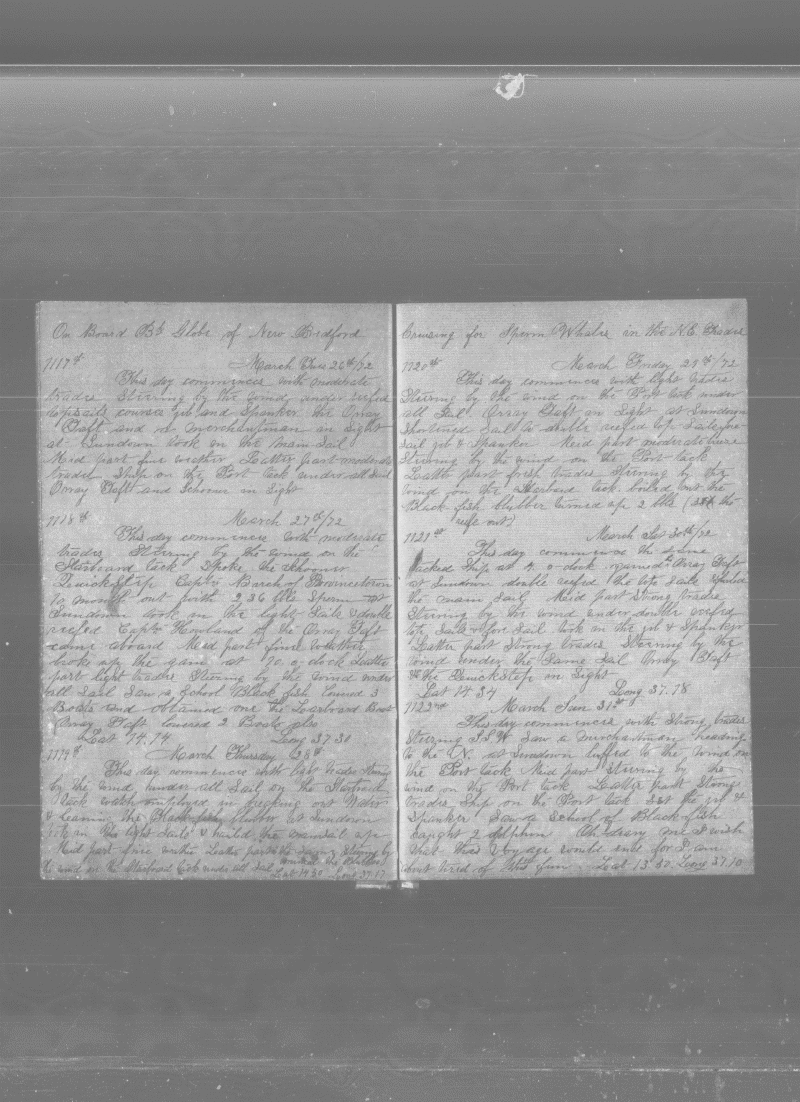 On Board Bk Globe of New Bedford
1117th March Tues 26th/72
This day commences with moderate
trades Steering by the wind under reefed
topsails courses jib and Spanker the Orray
Taft and a merchantman in Sight
at Sundown took in the main Sail
Mid part fine weather Latter part moderate
trades Ship on the Port tack under all Sail
Orray Taft and Schooner in Sight
1118th March 27th/72
This day commences with moderate
trades Steering by the wind on the
Starboard tack Spoke the Schooner
Quickstep Captn of Provincetown
months out with 236 bbls Sperm at
Sundown took in the light Sails & double
reefed Captn Howland of the Orray Taft
came aboard Mid part fine weather
broke up the gam at o clock Latter
part light trades Steering by the wind under
all Sail Saw a School Black fish lowered 3
Boats and obtained one the Larboard Boat
Orray Taft lowered 2 Boats also
Lat 14.14 Long 37 30
1119th March Thursday 28th
This day commences with trades Steering
by the wind under all Sail on the Starboard
tack watch employed in breaking out Water
& leaning the Black fish blubber at Sundown
took in the light Sails & hauled the mainsail up
Mid part fine weather Latter part the Same Steering by
the wind on the Starboard tack under all Sail minced the Blubber
Lat 14 30 Long 37.17
Cruising for Sperm Whales in the N.E. Trades
1120th March Friday 29th/72
This day commences with light trades
Steering by the wind on the Port tack under
all Sail Orray Taft in Sight at Sundown
Shortened Sail to double reefed top Sails fore
sail jib & Spanker Mid part moderate breeze
Steering by the wind on the Port tack
Latter part fresh trades Steering by the
wind on the Starboard tack boiled out the
Black fish blubber turned up 2 bbls ( the
out)
1121st March Sat 30th/72
This day commences the Same
tacked Ship at 4 o clock gamed Orray Taft
at Sundown double reefed the top Sails & furled
the main Sail Mid part Strong trades
Steering by the wind under double reefed
top Sails & fore Sail took in the jib & Spanker
Latter part Strong trades Steering by the
wind under the Same Sail Orray Taft
& the Quickstep in Sight
Lat 14 34 Long 37.18
1122nd March Sun 31st
This day commences with Strong trades
Steering S S W Saw a merchantman heading
to the N. at Sundown luffed to the wind on
the Port tack Mid part Steering by the
wind on the Port tack Latter part Strong
trades Ship on the Port tack Set the jib &
Spanker Saw a School of Black fish
Caught 2 dolphin Oh deary me I wish
that this Voyage would end for I am
about tired of this fun Lat 13 50 Long 37.10